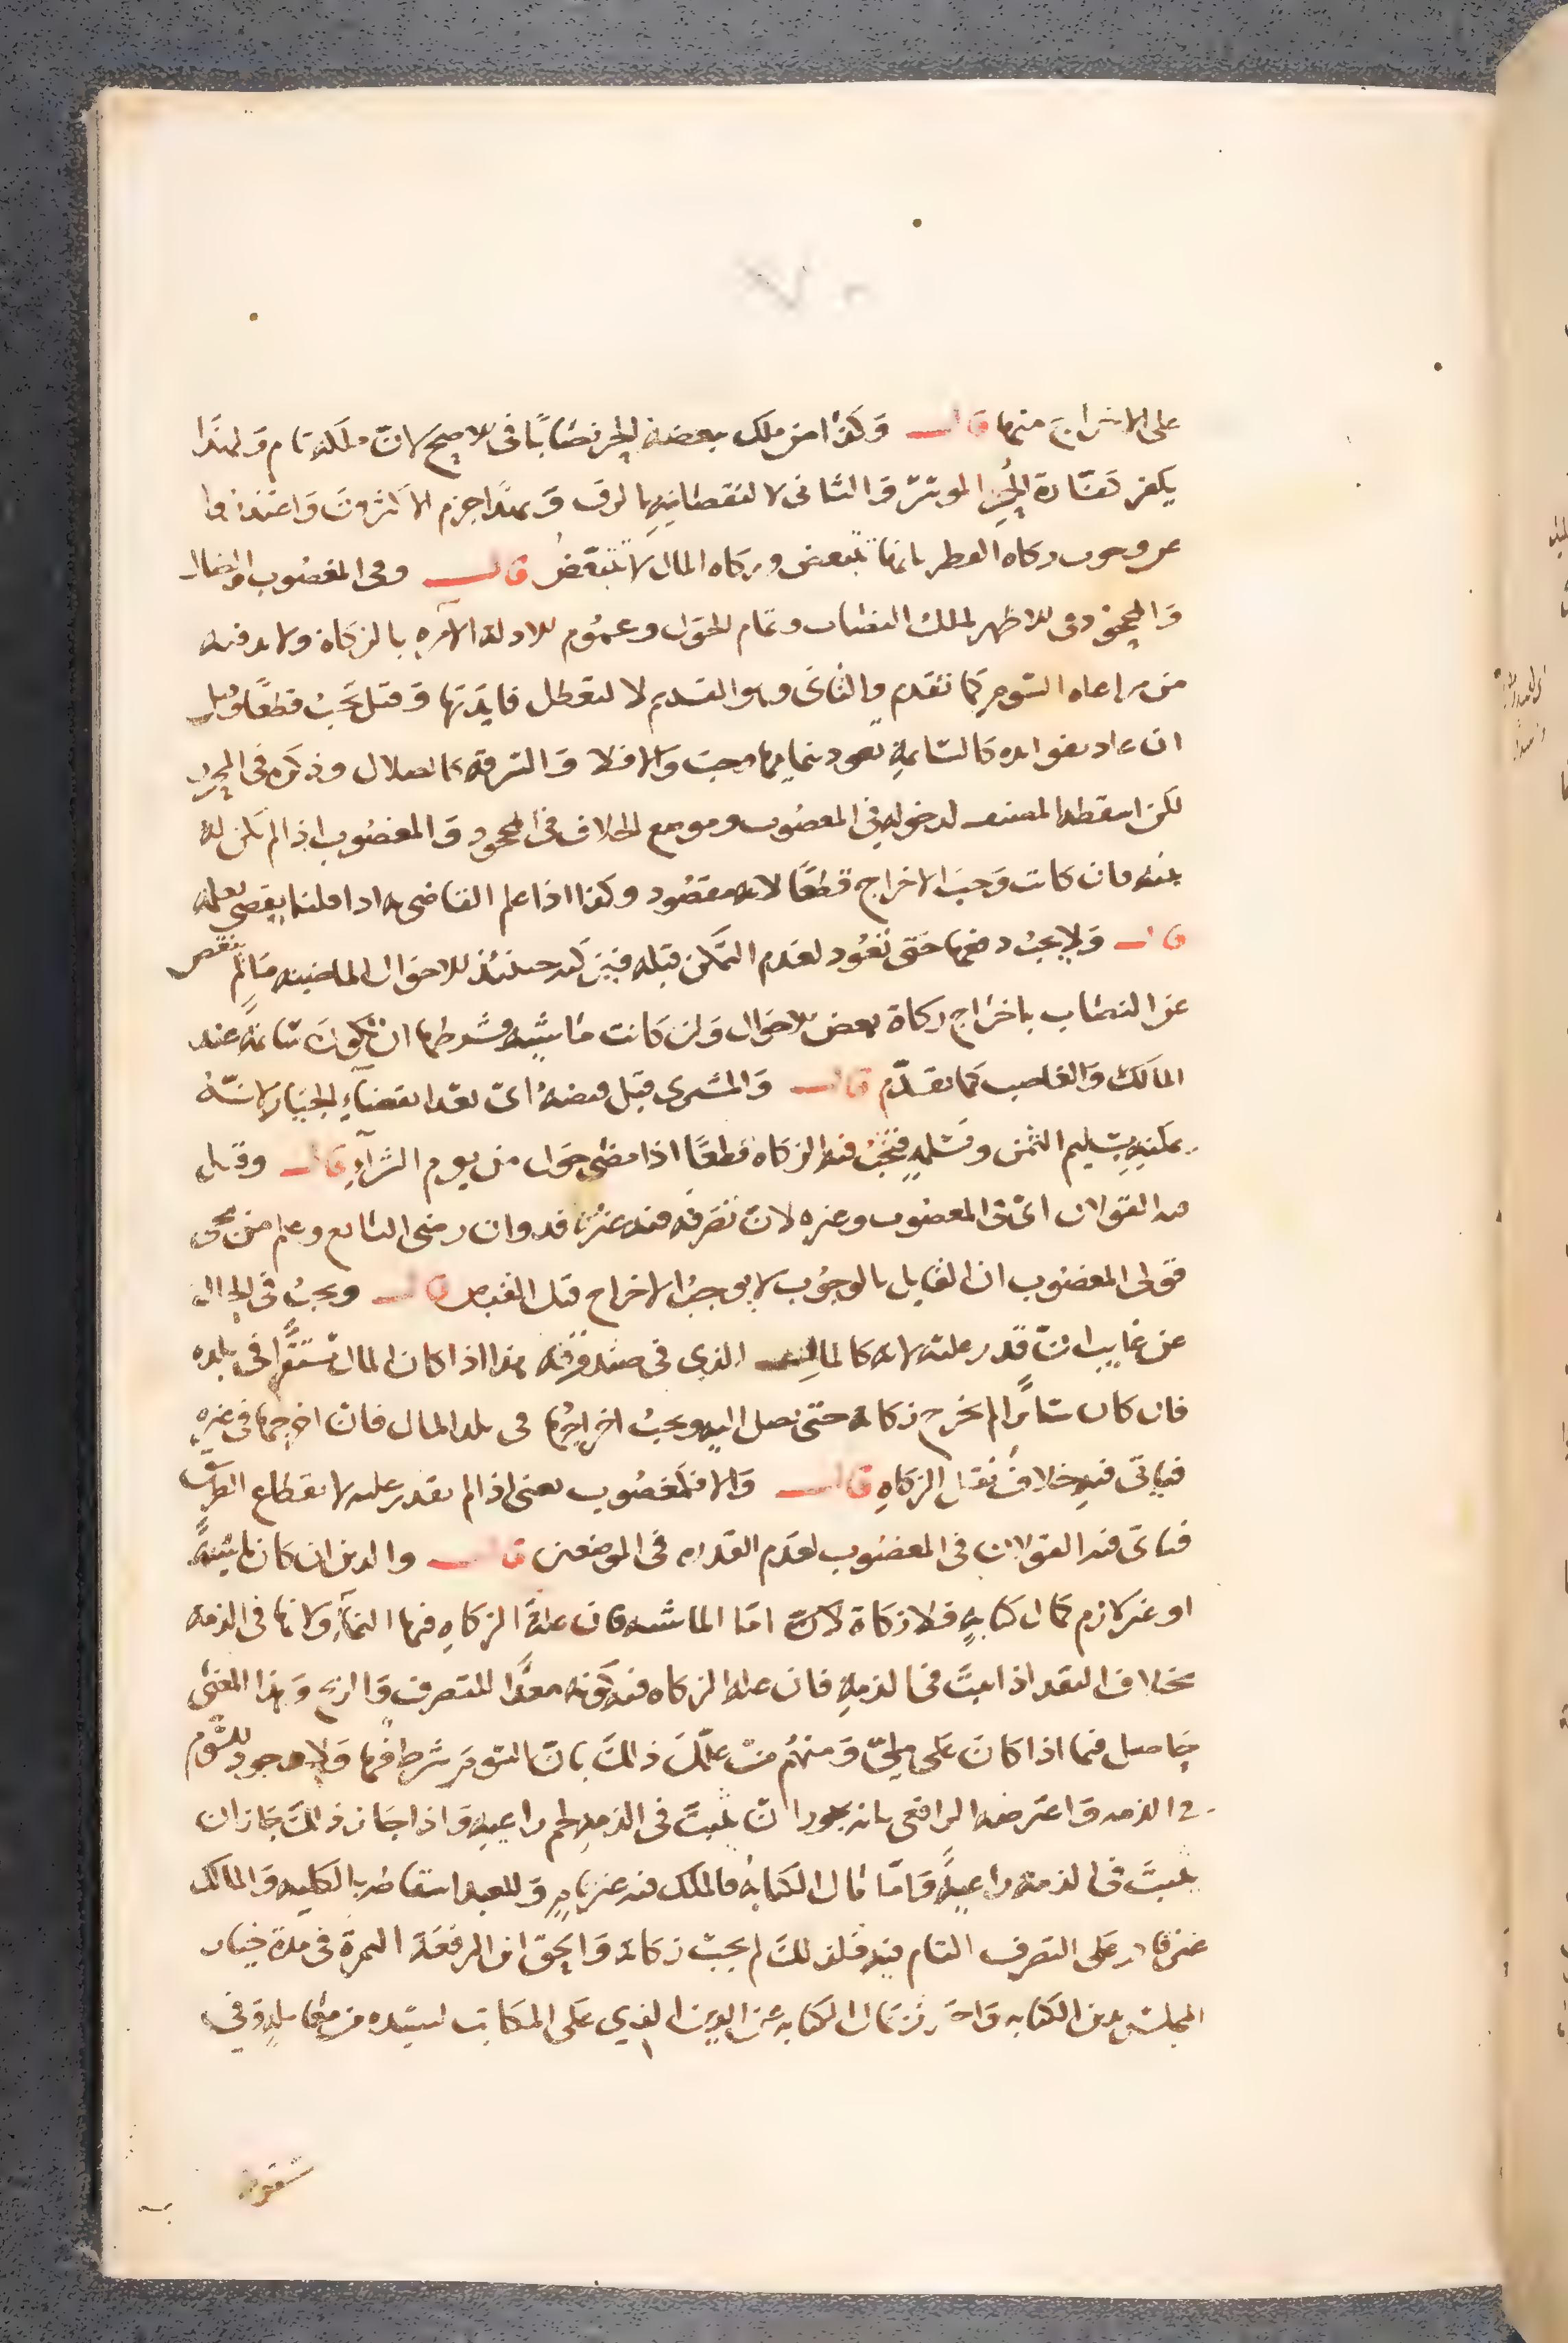 على الاخراج منها قال وكذا من ملك ببعضه الحر نصابا في الاصح لان ملكه تام ولهذا
يكفر كفارة الحر الموسر والثاني لا لنقصانه بالرق وبهذا جزم الاكثرون واعتذروا
عن وجوب زكاة الفطر بانها تتبعض وزكاه المال لا تتبعض قال وفي المغصوب والضال
والمجحود في الاظهر لملك النصاب وتمام الحول وعموم الادلة الآمره بالزكاة ولا بد فيه
من مراعاه السوم كما تقدم والثاني وهو القديم لا لتعطل فايدتها وقيل تجب قطعا وقيل
ان عاد بفوايده كالسايمة تعود بنمايها وجبت والا فلا والسرقة كالضلال وذكره في المحرر
لكن اسقطه المصنف لدخوله في المغصوب وموضع الخلاف في المجحود والمغصوب اذا لم يكن له
بينه فان كانت وجب الاخراج قطعا لانه مقصر وكذا اذا علم القاضي به اذا قلنا يقضي بعلمه
قال ولا يجب دفعها حتى تعود لعدم التمكن قبله فيزكيه حينئذ للاحوال الماضيه ما لم ينقص
عن النصاب باخراج زكاة بعض الاحوال ولو كانت ماشيه فشرطها ان تكون سائمة عند
المالك والغاصب كما تقدم قال والمشترى قبل قبضه اي بعد انقضاء الخيار لانه
يمكنه تسليم الثمن وتسلمه فتجب فيه الزكاه قطعا اذا مضى حول من يوم الشراء قال وقيل
فيه القولان اي في المغصوب وغيره لان تصرفه فيه غير نافذ وان رضي البايع وعلم من
قولي المغصوب ان القايل بالوجوب لا يوجب الاخراج قبل القبض قال ويجب في الحال
عن غايب ان قدر عليه لانه كالمال الذي في صندوقه هذا اذا كان المال مستقرا في بلده
فان كان سائرا لم يخرج زكاته حتى يصل اليه ويجب اخراجها في بلد المال فان اخرجها في غيره
فياتي فيه خلاف نقل الزكاه قال والا فكمغصوب يعني اذا لم يقدر عليه لانقطاع الطريق
فياتي فيه القولان في المغصوب لعدم القدره في الموضعين قال والدين ان كان ماشية
او غير لازم كمال كتابه فلا زكاة لان اما الماشيه فان علة الزكاه فيها النماء ولا نما في الذمه
بخلاف النقد اذا ثبت في الذمة فان علة الزكاه فيه كونه معدا للتصرف والربح وهذا المعنى
حاصل فيما اذا كان على ملي ومنهم من علل ذلك بان السوم شرط فيها ولا وجود للسوم
في الذمه واعترضه الرافعي بانه يجوز ان يثبت في الذمه لحم راعيه واذا جاز ذلك جاز ان
يثبت في الذمه راعية واما مال الكتابه فالملك فيه غير تام وللعبد اسقاطه بالكليه والمالك
غير قادر على التصرف التام فيه فلذلك لم يجب زكاته والحق ابن الرفعة الثمرة في مدة خيار
المجلس بدين الكتابه واحترز بمال الكتابه عن الدين الذي على المكاتب لسيده من معاملة وفي
سقوطه